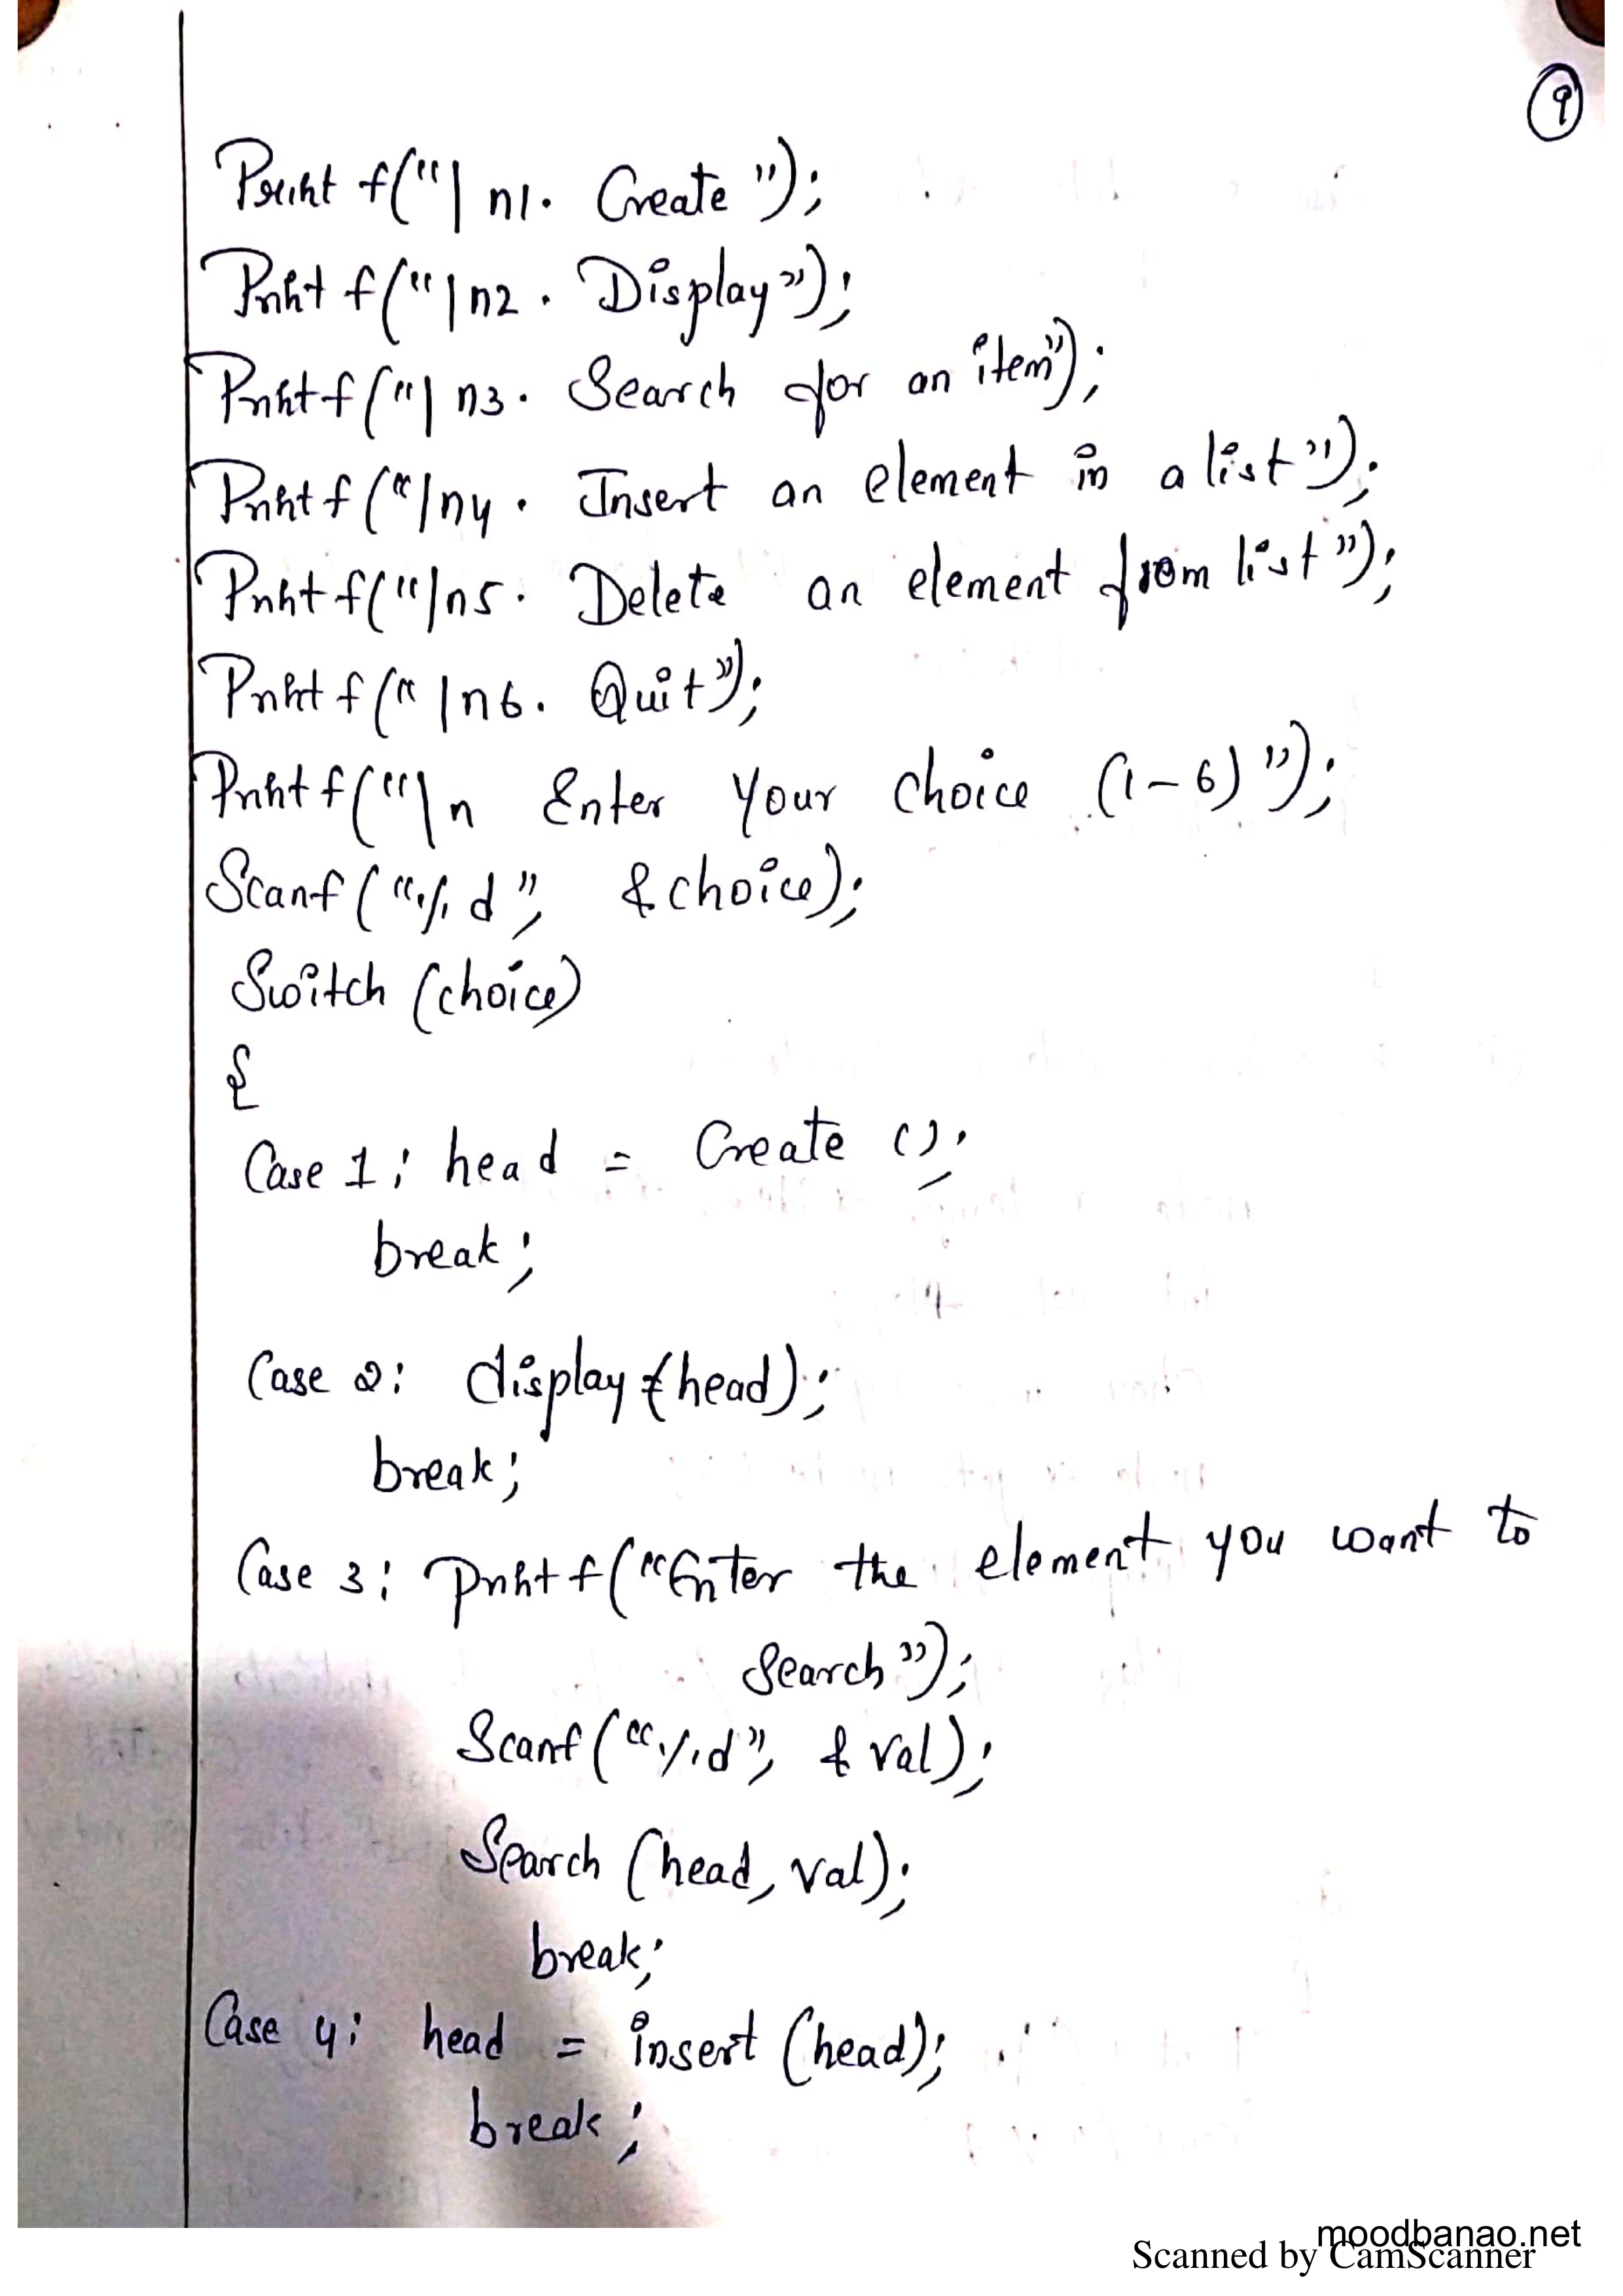 9
Printf("\n1. Create");
Printf("\n2. Display");
Printf("\n3. Search for an item");
Printf("\n4. Insert an element in a list");
Printf("\n5. Delete an element from list");
Printf("\n6. Quit");
Printf("\n Enter Your choice (1-6)");
Scanf("%d", &choice);
Switch (choice)
{
Case 1: head = Create ();
break;
Case 2: display(head);
break;
Case 3: printf("Enter the element you want to
Search");
Scanf("%d", &val);
Search (head, val);
break;
Case 4: head = insert (head);
break;
moodbanao.net
Scanned by CamScanner